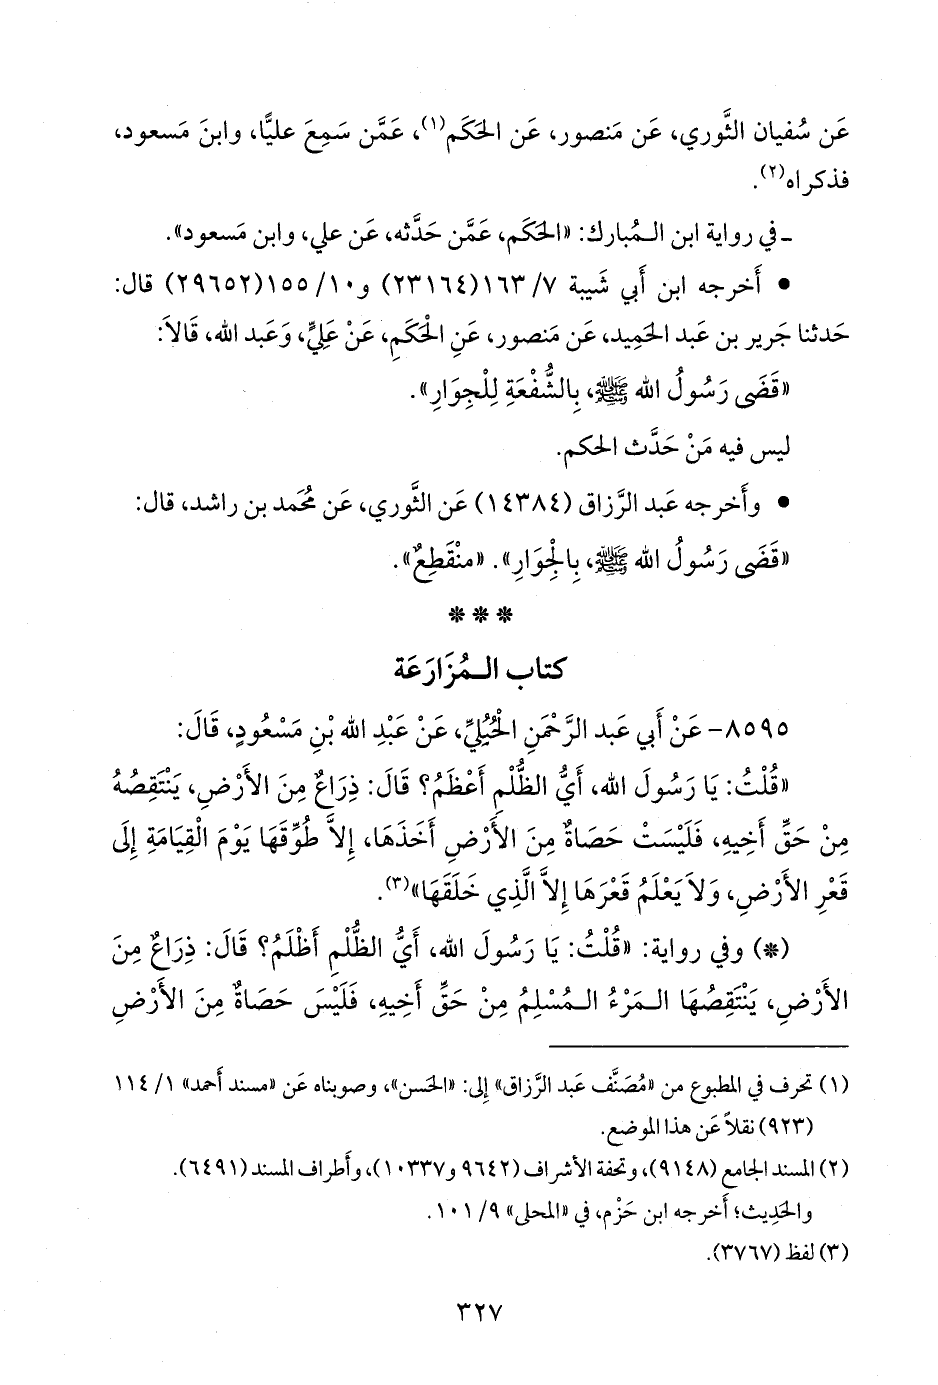 عَن سُفيان الثَّوري، عَن مَنصور، عَن الحَكَم(١)، عَمَّن سَمِعَ عليًّا، وابنَ مَسعود،
فذكراه(٢).
ـ في رواية ابن الـمُبارك: «الحَكَم، عَمَّن حَدَّثه، عَن علي، وابن مَسعود».
• أَخرجه ابن أَبي شَيبة ٧/ ١٦٣(٢٣١٦٤) و١٠/ ١٥٥(٢٩٦٥٢) قال:
حَدثنا جَرير بن عَبد الحَمِيد، عَن مَنصور، عَنِ الْحَكَمِ، عَنْ عَلِيٍّ، وَعَبد الله، قَالاَ:
«قَضَى رَسُولُ الله ﷺ، بِالشُّفْعَةِ لِلْجِوَارِ».
ليس فيه مَنْ حَدَّث الحكم.
• وأَخرجه عَبد الرَّزاق (١٤٣٨٤) عَن الثَّوري، عَن مُحَمد بن راشد، قال:
«قَضَى رَسُولُ الله ﷺ، بِالْجِوَارِ». «منْقَطِعٌ».
***
كتاب الـمُزَارَعَة
٨٥٩٥- عَنْ أَبي عَبد الرَّحْمَنِ الْحُبُلِيِّ، عَنْ عَبْدِ الله بْنِ مَسْعُودٍ، قَالَ:
«قُلْتُ: يَا رَسُولَ الله، أَيُّ الظُّلْمِ أَعْظَمُ؟ قَالَ: ذِرَاعٌ مِنَ الأَرْضِ، يَنْتَقِصُهُ
مِنْ حَقِّ أَخِيهِ، فَلَيْسَتْ حَصَاةٌ مِنَ الأَرْضِ أَخَذَهَا، إِلاَّ طُوِّقَهَا يَوْمَ الْقِيَامَةِ إِلَى
قَعْرِ الأَرْضِ، وَلاَ يَعْلَمُ قَعْرَهَا إِلاَّ الَّذِي خَلَقَهَا»(٣).
(*) وفي رواية: «قُلْتُ: يَا رَسُولَ الله، أَيُّ الظُّلْمِ أَظْلَمُ؟ قَالَ: ذِرَاعٌ مِنَ
الأَرْضِ، يَنْتَقِصُهَا الـمَرْءُ الـمُسْلِمُ مِنْ حَقِّ أَخِيهِ، فَلَيْسَ حَصَاةٌ مِنَ الأَرْضِ
(١) تحرف في المطبوع من «مُصَنَّف عَبد الرَّزاق» إلى: «الحَسن»، وصوبناه عَن «مسند أَحمد» ١/ ١١٤
(٩٢٣) نقلاً عَن هذا الموضع.
(٢) المسند الجامع (٩١٤٨)، وتحفة الأشراف (٩٦٤٢ و١٠٣٣٧)، وأَطراف المسند (٦٤٩١).
والحَدِيث؛ أَخرجه ابن حَزْم، في «المحلى» ٩/ ١٠١.
(٣) لفظ (٣٧٦٧).
٣٢٧